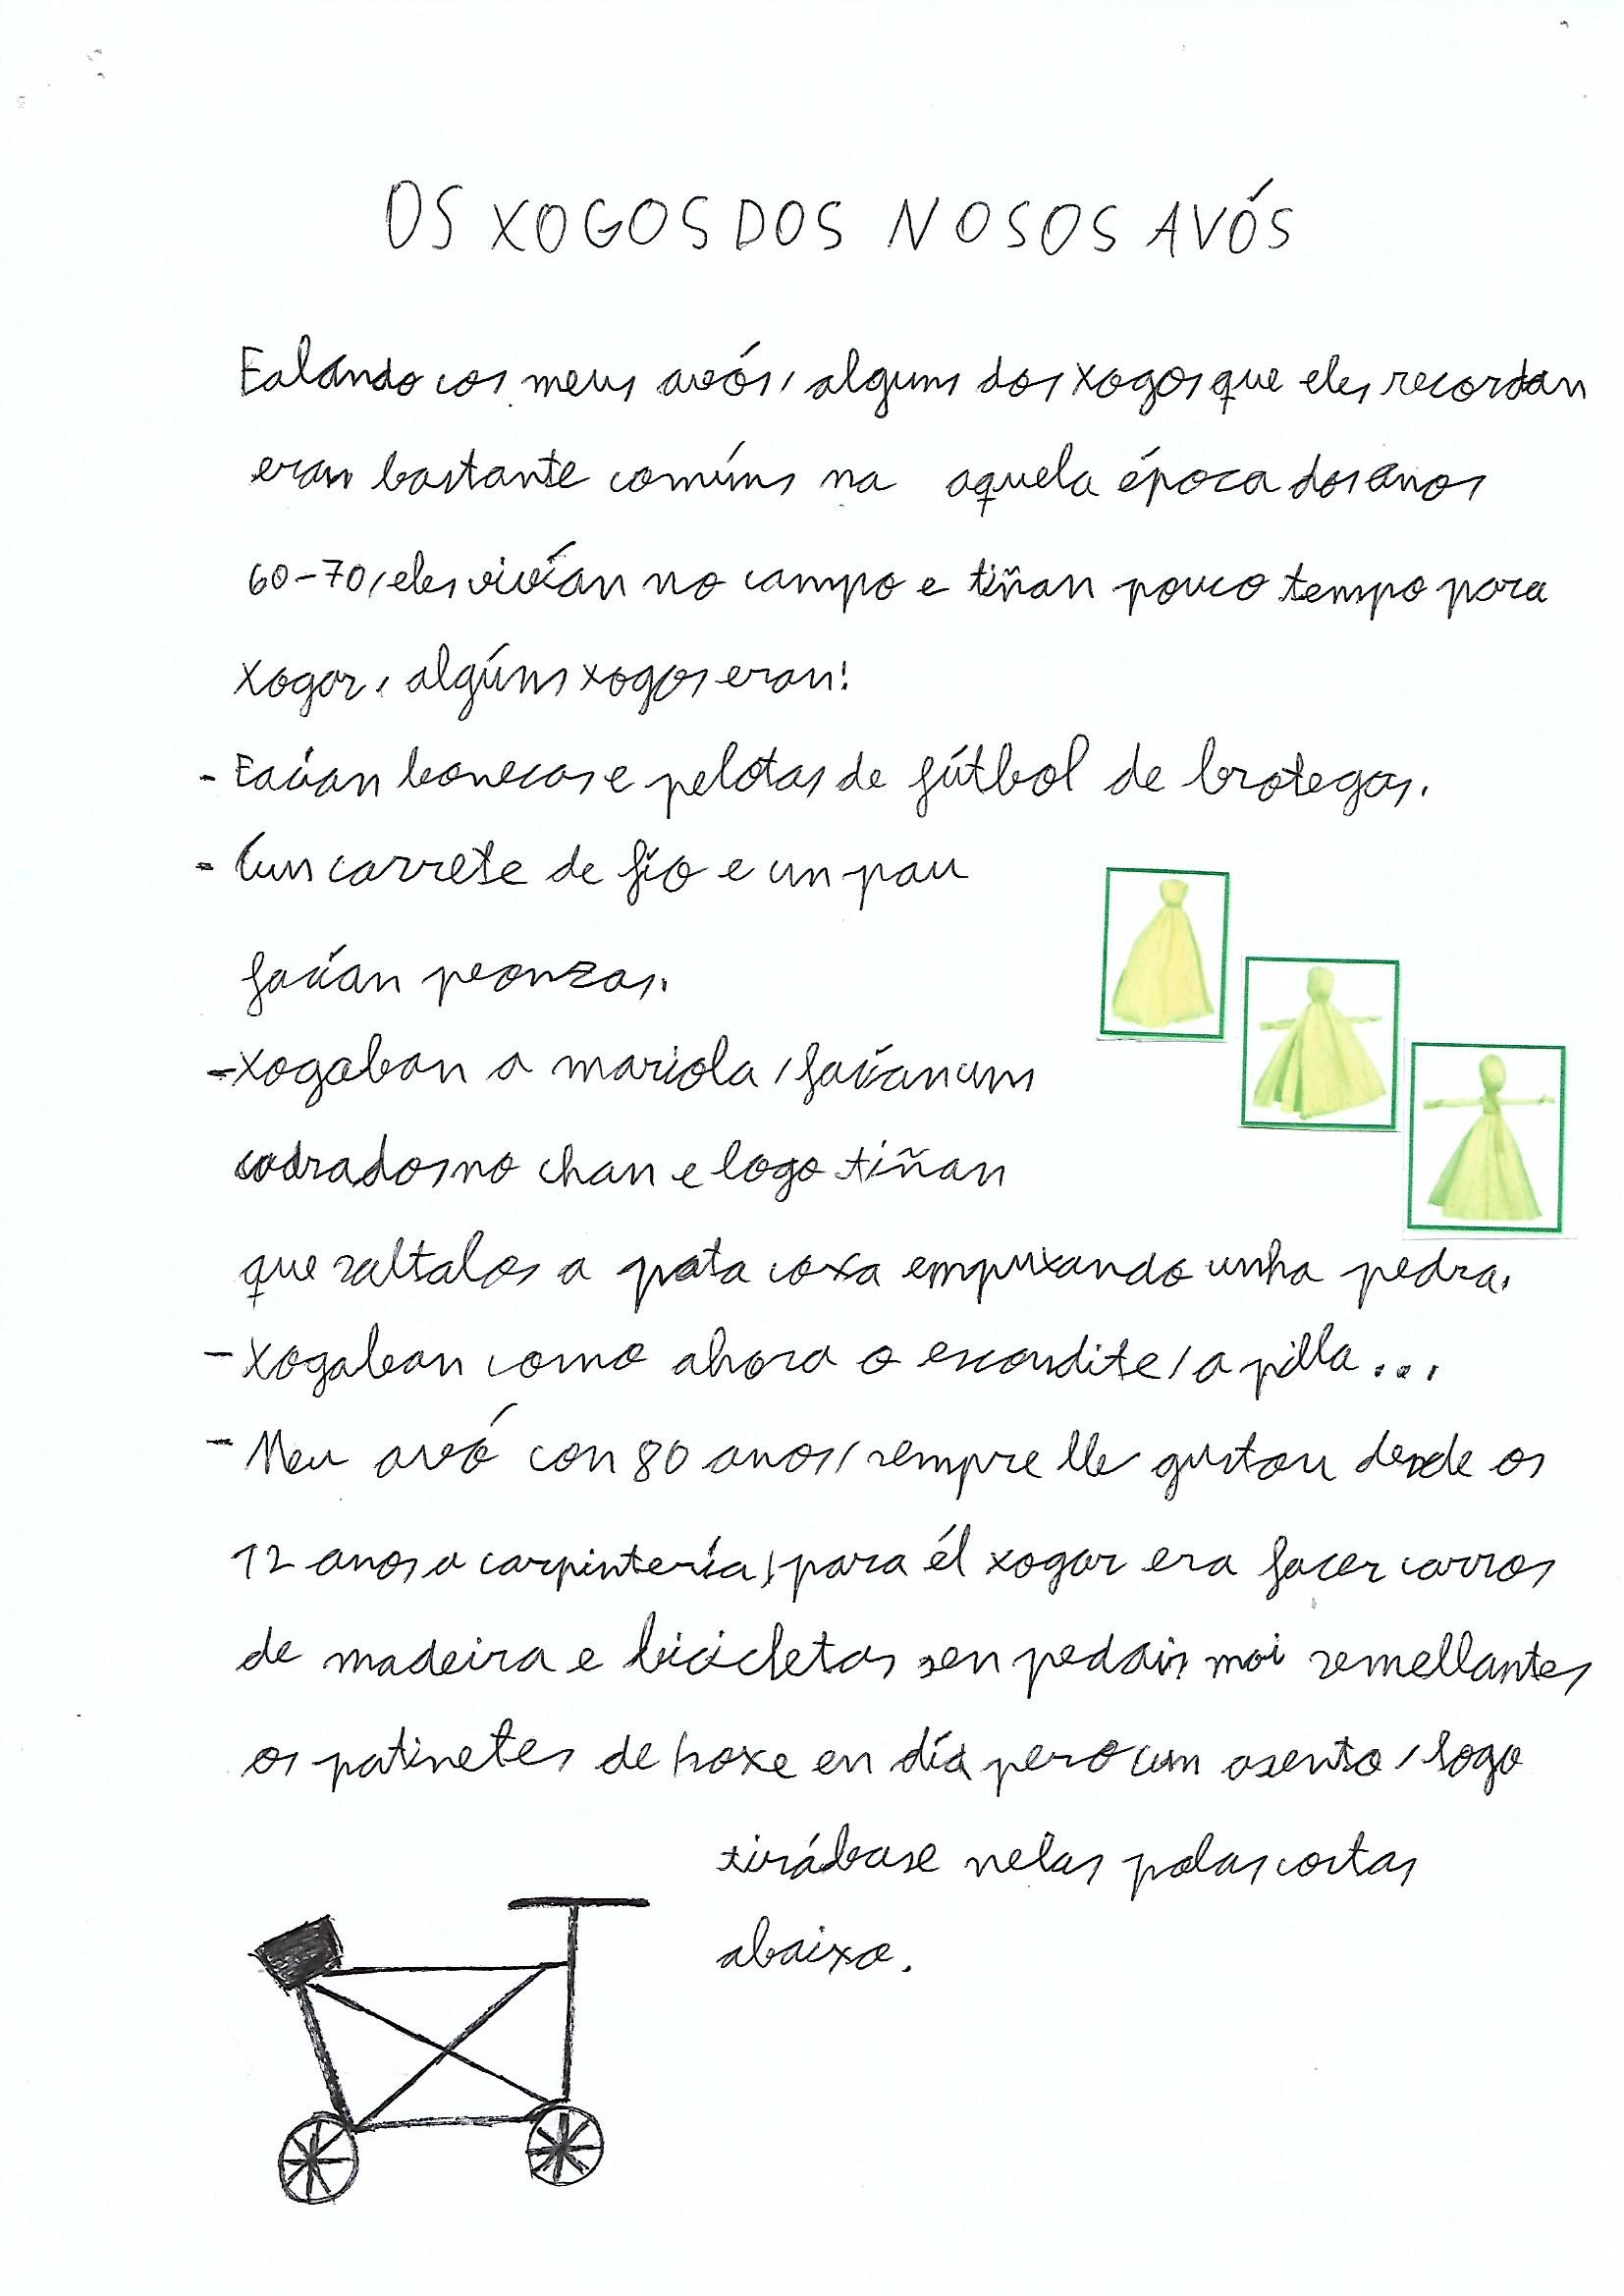 OS XOGOS DOS NOSOS AVÓS
Falando cos meus avós, alguns dos xogos que eles recordan
eran bastante comúns na aquela época dos anos
60-70, eles vivían no campo e tiñan pouco tempo para
xogar, algúns xogos eran:
- Facían bonecas e pelotas de fútbol de brotegas.
- Cun carrete de fío e un pau
facían peonzas.
- Xogaban a mariola, facían uns
cadrados no chan e logo tiñan
que saltalos a pata coxa empuxando unha pedra.
- Xogaban como ahora o escondite, a pilla...
- Meu avó con 80 anos, sempre lle gustou desde os
12 anos a carpintería, para él xogar era facer carros
de madeira e bicicletas sen pedais moi semellantes
os patinetes de hoxe en día pero cun asento, logo
tirábase nelas polas costas
abaixo.